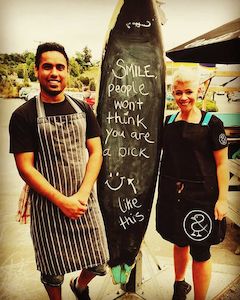 SMILE,
people
won't
think
you are
a pick
like
this